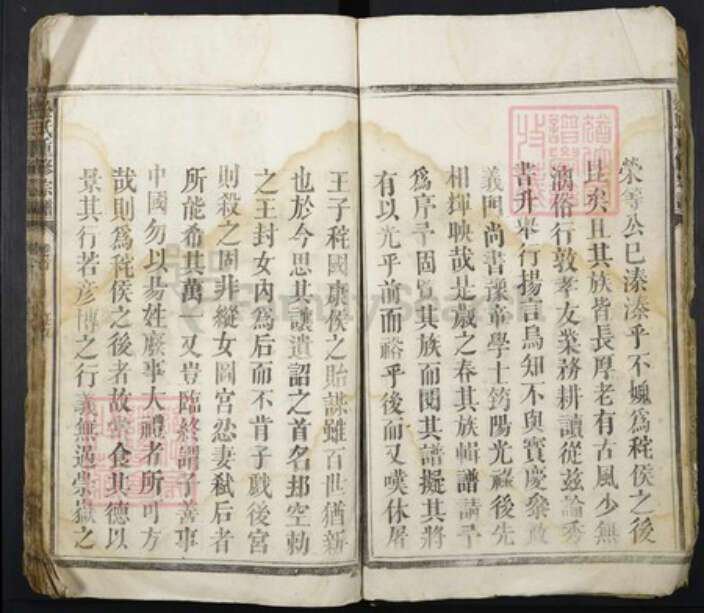 榮等公已溱溱乎不媿爲秺侯之後
且矣且其族皆長厚老有古風少無
漓俗行敦孝友業務耕讀從兹論秀
書升舉行揚言烏知不與寶慶
義門尚書 帝學士筠陽光祿後先
相輝映哉是歲之春其族輯譜請予
爲序予固 其族而閱其譜擬其將
有以光乎前而裕乎後而又嘆休屠
王子秺國康侯之貽謀雖百世猶新
也於今思其讓遺詔之首名 空勅
之王封女內爲后而不肯子戲後宮
則殺之固非縱女圖宮忍妻弒后者
所能希其萬一又豈臨終謂子善事
中國勿以易姓廢事大禮者所可方
哉則爲秺侯之後者故當食其德以
景其行若彥博之行義無過崇嶽之